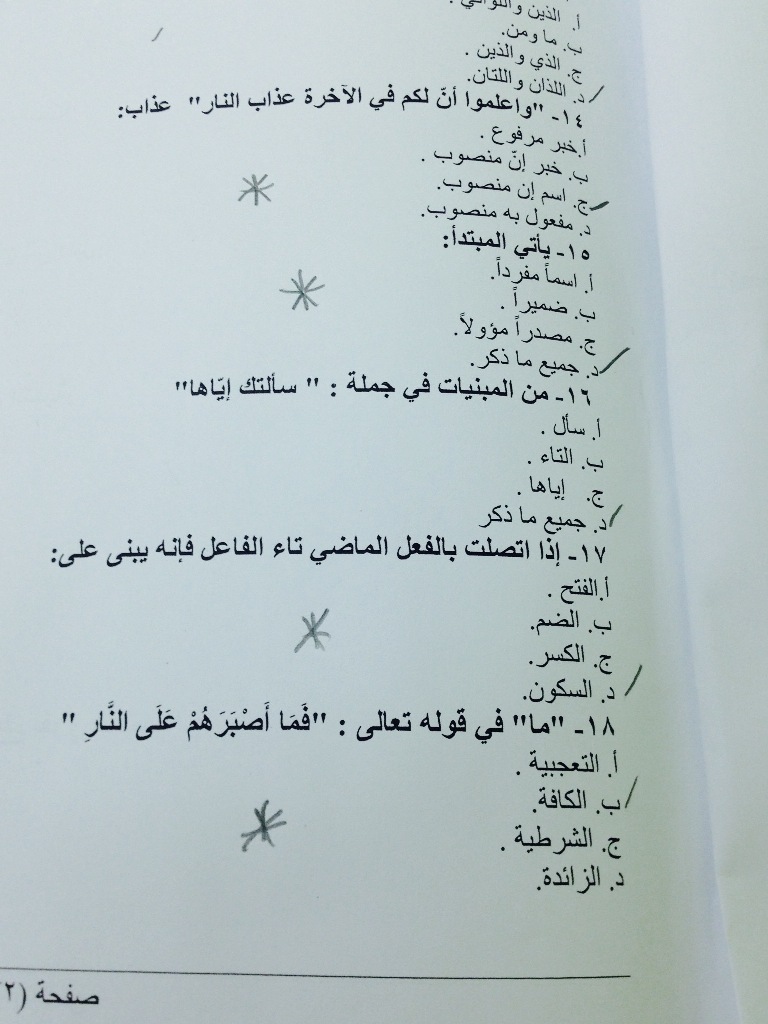 أ. الذين واللواتي .
ب. ما ومن.
ج. الذي والذين .
د. اللذان واللتان.
١٤- "واعلموا أنّ لكم في الآخرة عذاب النار" عذاب:
أ.خبر مرفوع .
ب. خبر إنّ منصوب .
ج. اسم إن منصوب.
د. مفعول به منصوب.
١٥- يأتي المبتدأ:
أ. اسماً مفرداً.
ب. ضميراً .
ج. مصدراً مؤولاً.
د. جميع ما ذكر.
١٦- من المبنيات في جملة : " سألتك إيّاها"
أ. سأل .
ب. التاء .
ج. إياها .
د. جميع ما ذكر
١٧- إذا اتصلت بالفعل الماضي تاء الفاعل فإنه يبنى على:
أ.الفتح .
ب. الضم.
ج. الكسر.
د. السكون.
١٨- "ما" في قوله تعالى : "فَمَا أَصْبَرَهُمْ عَلَى النَّارِ "
أ. التعجبية .
ب. الكافة.
ج. الشرطية .
د. الزائدة.
صفحة (٢